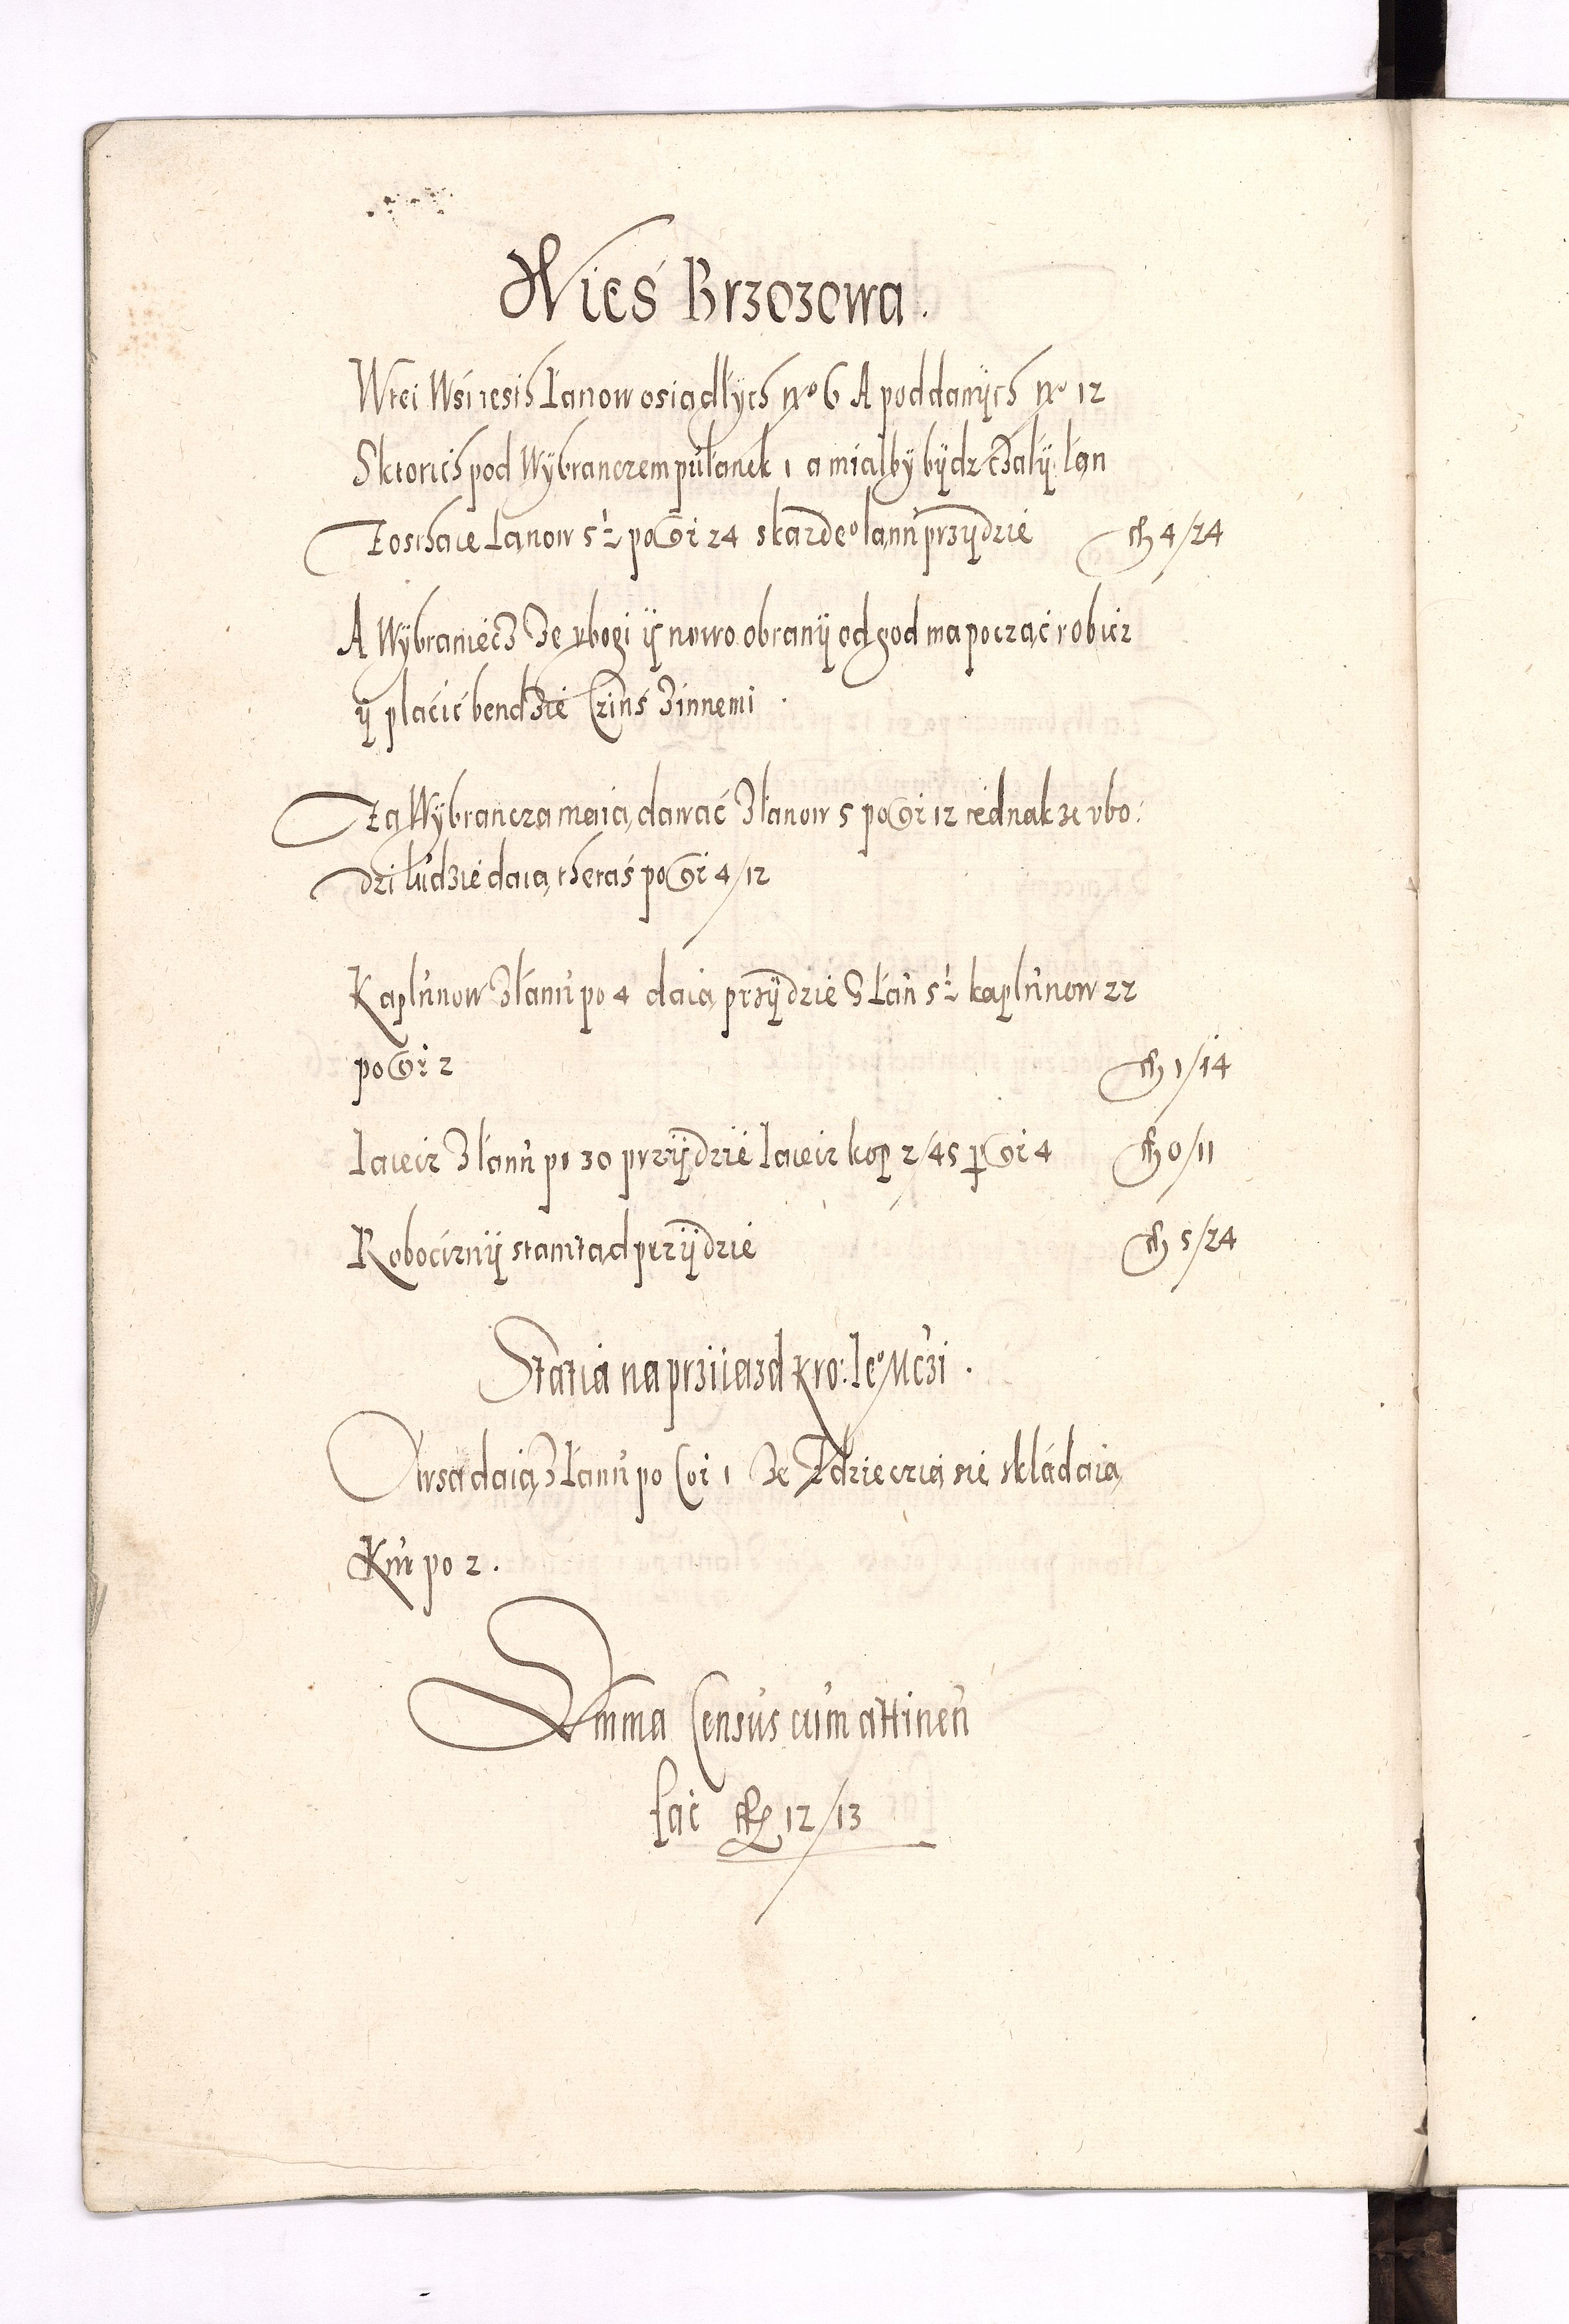 Wieś Brzozowa.
Wtei Wsi iesth Łanow osiadłÿch nro 6 A poddanÿch nro 12
Sktorich pod Wÿbranczem pułanek 1 a miałbÿ bÿdz czałÿ łan
Zosthaie Łanow 5½ po Gr 24 skazdeo łanu przÿdzie fl 4/24
A Wÿbraniecz Ze vbogi ÿ nowo obranÿ od god ma począć robicz
ÿ płacić bendzie Czinś Zinnemi.
Za Wÿbrancza maią dawać Złanow 5 po Gr 12 iednak ze vbo:
dzi ludzie daią theraś po Gr 4/12
Kapłunow Złanu po 4 daią przÿdzie S Łan 5½ kapłunow 22
po Gr 2 fl 1/14
Iaiecz Złanu po 30 przÿdzie Iaiecz kop 2/45 p Gr 4 fl 0/11
Robociznÿ stamtąd przÿdzie fl 5/24
Statia na prziiazd Kro: Ieo Mczi.
Owsa daią Złanu po Cor 1 Ze Zdzieczią sie składaią
Kur po 2.
Summa Census cum attinen
fac fl 12/13